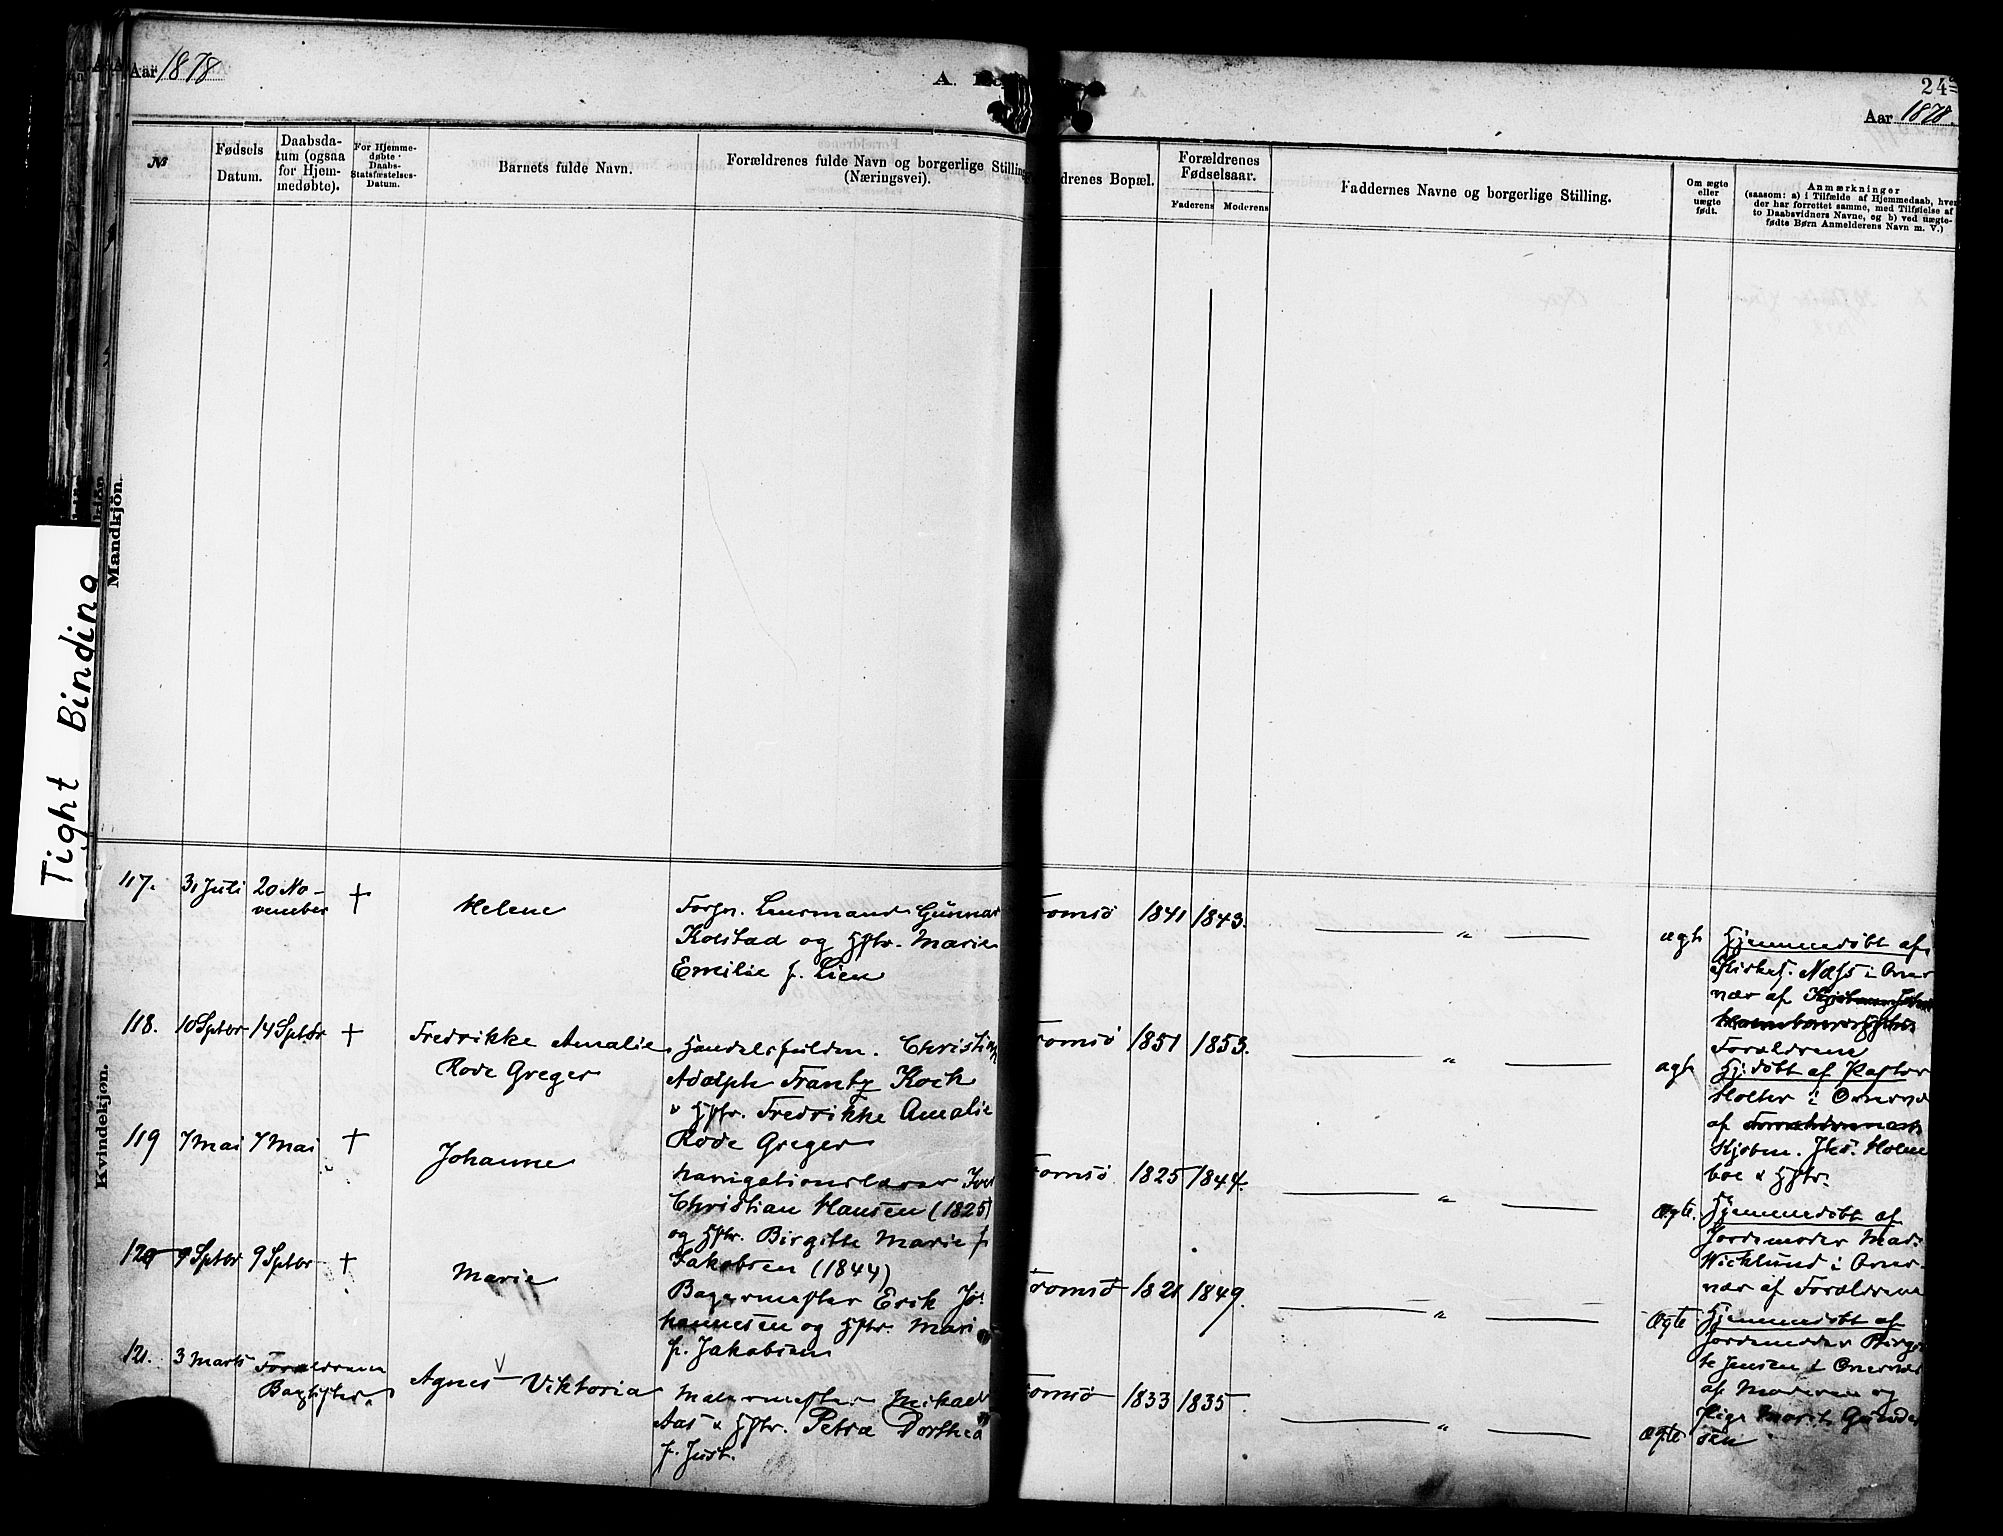 Aar 1878
A.
24
Aar 1878.
№
Fødsels
Datum.
Daabsda-
tum (ogsaa
for Hjem-
medøbte).
For Hjemme-
døbte
Daabs-
Statsfæstelses-
Datum.
Barnets fulde Navn.
Forældrenes fulde Navn og borgerlige Stilling
(Næringsvei).
drenes Bopæl.
Forældrenes
Fødselsaar.
Faderens Moderens
Faddernes Navne og borgerlige Stilling.
Om ægte
eller
uægte
født.
Anmærkninger
(saasom: a) i Tilfælde af Hjemmedaab, hve
der har forrettet samme, med Tilføielse af
to Daabsvidners Navne, og b) ved uægte-
fødte Børn Anmelderens Navn m. V.)
Mandkjön.
Tight Binding
Kvindekjøn.
117.
31 Juli
20 No-
vember
†
Helene
Forhn. Lensmand Gunnar
Kolstad og Hstr. Marie
Emilie f. Lien
romsö
1841
1843.
"
ægte
Hjemmedøbt af
Næss i Over
vær af
Forældrene
118.
10 Sptbr
14 Sptbr
†
Fredrikke Amalie
Rode Greger
Handelsfuldm. Christian
Adolph Frantz Koch
& Hstr. Fredrikke Amalie
Rode Greger
romsö
1851
1853.
"
ægte
Hj:døbt af Pastor
Holter i Overvæ
af
Kjøbm. Jhs. Holm
boe & Hstr.
119
7 Mai
7 Mai
†
Johanne
Navigationslærer Iver
Christian Hansen (1825)
og Hstr. Birgitte Marie f
Jakobsen (1844)
romsö
1825
1844.
"
Ægte.
Hjemmedøbt af
Jordemoder Mad.
Wicklund i Over-
vær af Forældrene
120
9 Sptbr
9 Sptbr
†
Marie
Bagermester Erik Jo-
hannesen og Hstr. Mari
f. Jakobsen
romsö
1821
1849.
"
Ægte
Hjemmedøbt af
Jordemoder Birgit
te Jensen i Overvær
af Moderen og
Pige Marit Gunder
sen
121.
3 Marts
Forældrene
Baptister.
Agnes Viktoria
Malermester Mikael
Aas & Hstr. Petra Dorthea
f. Just.
romsö
1833
1835.
"
ægte